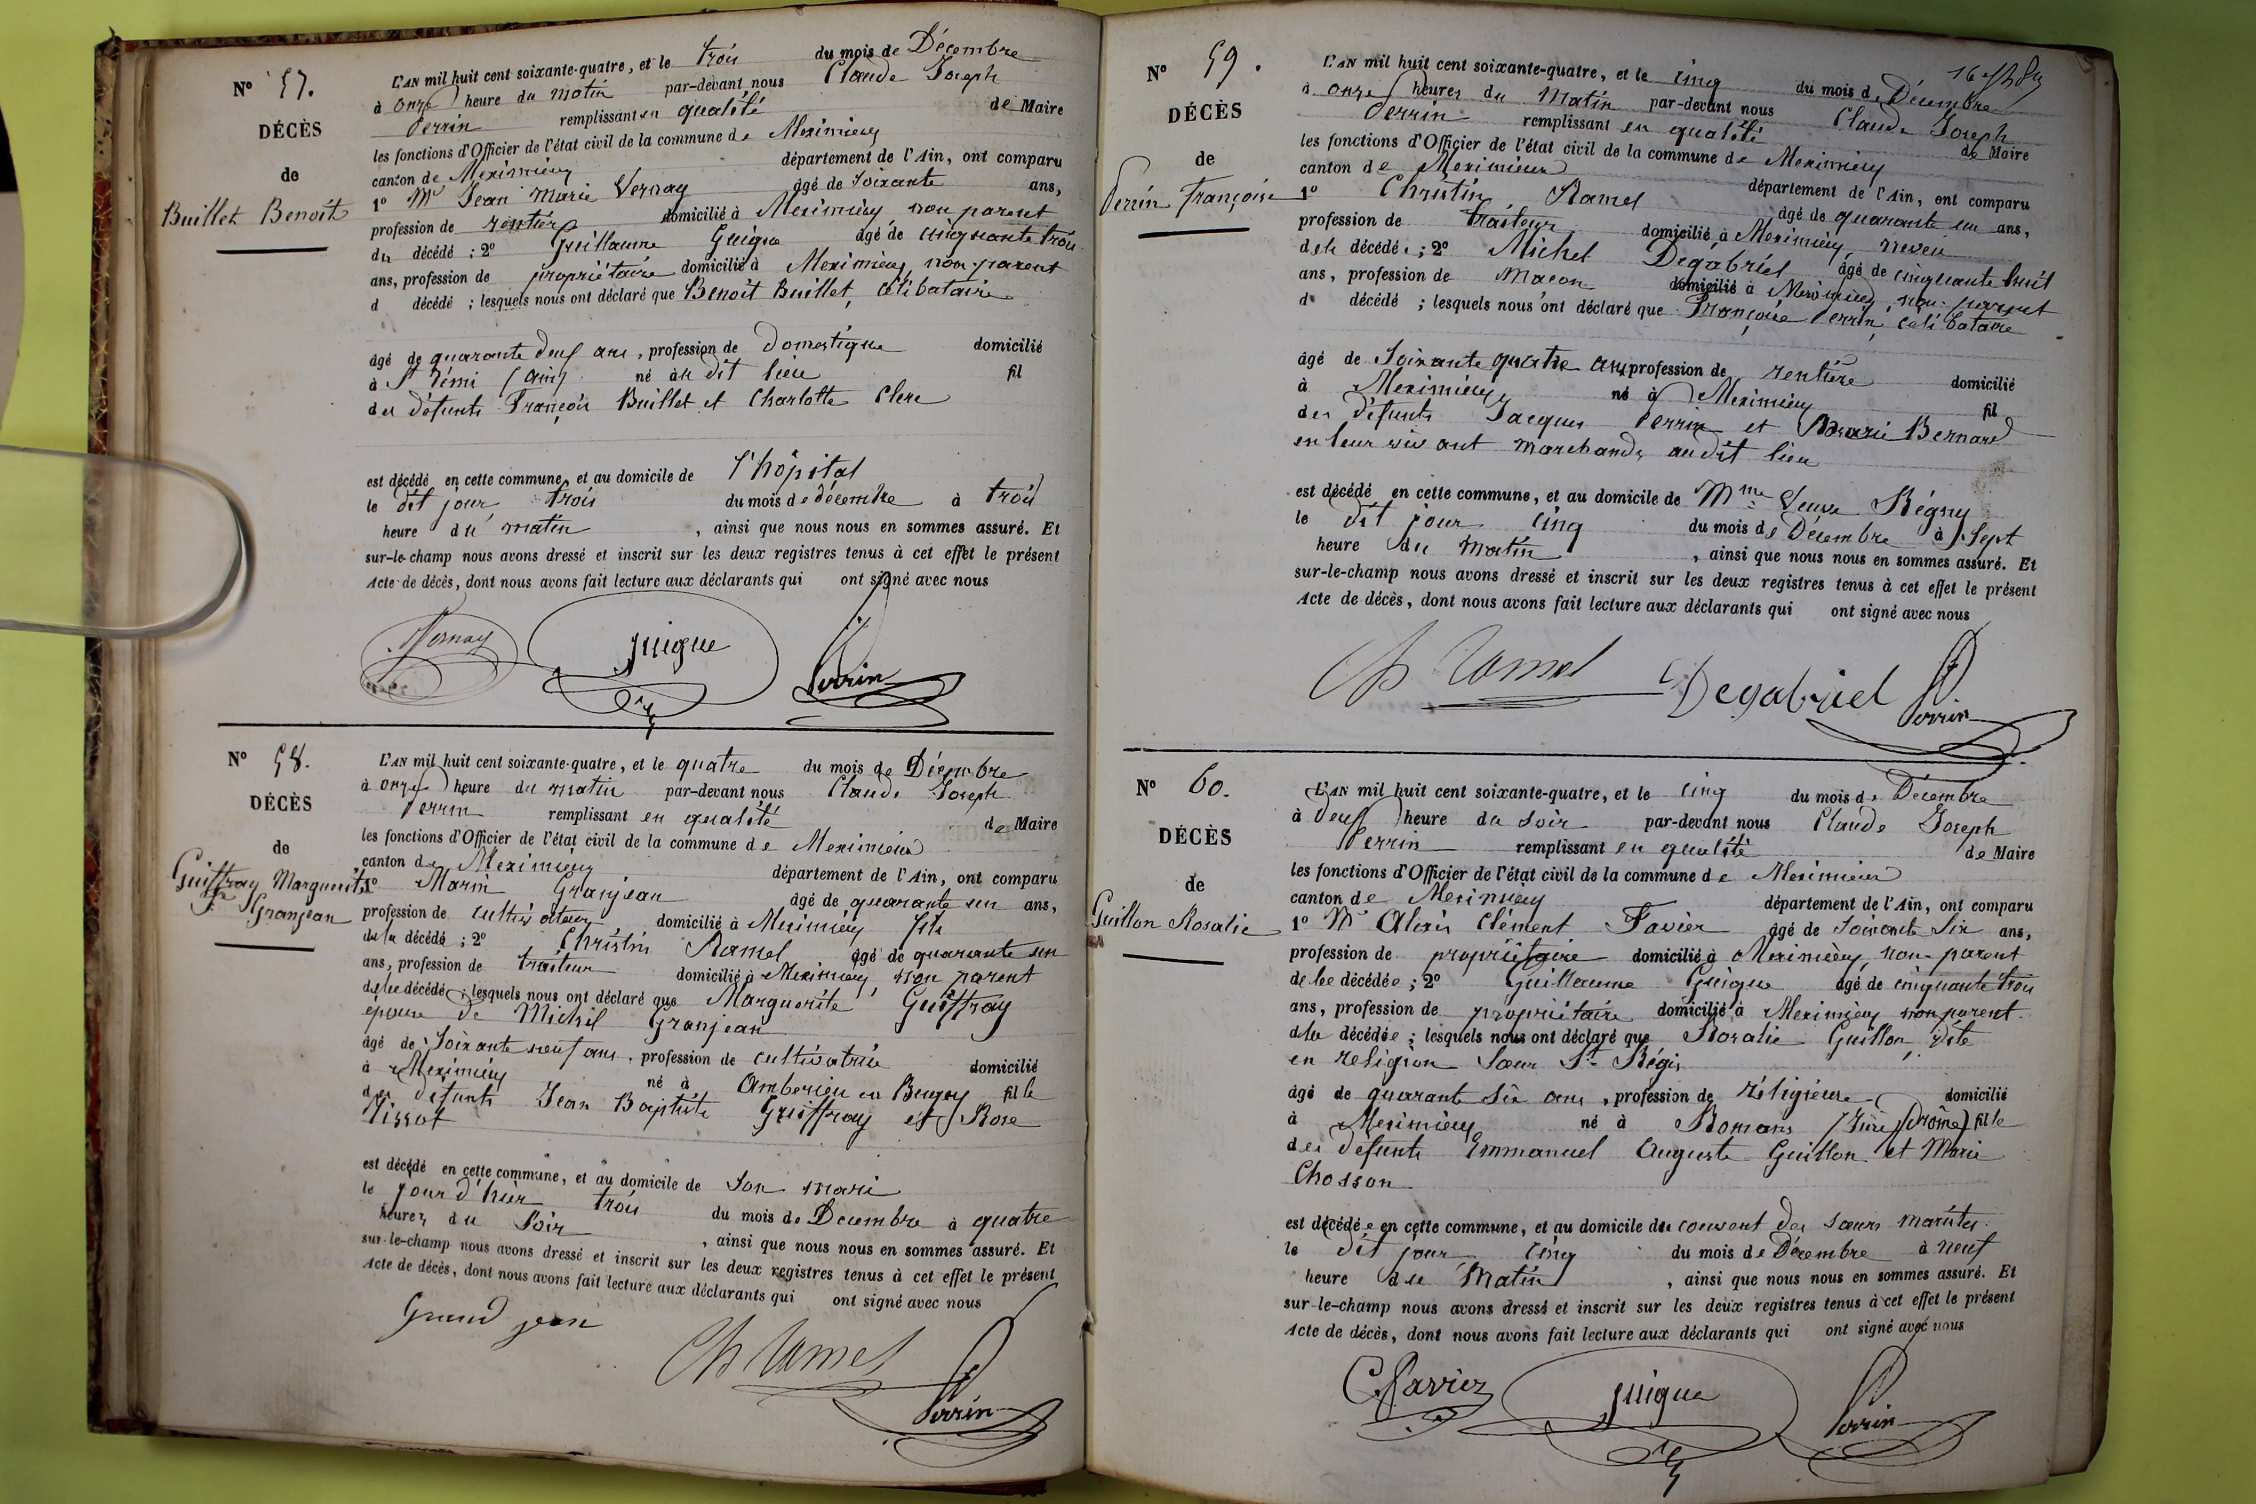 N° 57.
DÉCÈS
de
Buillet Benoît
L'AN mil huit cent soixante-quatre, et le trois du mois de Décembre
à onze heure du matin par-devant nous Claude Joseph
Perrin remplissant en qualité de Maire
les fonctions d'Officier de l'état civil de la commune de Meximieux
canton de Meximieux département de l'Ain, ont comparu
1° Mr Jean Marie Vernay âgé de soixante ans,
profession de rentier domicilié à Meximieux, non parent
du décédé ; 2° Guillaume Guigue âgé de cinquante trois
ans, profession de propriétaire domicilié à Meximieux, non parent
d décédé ; lesquels nous ont déclaré que Benoît Buillet, célibataire
âgé de quarante deux ans, profession de domestique domicilié
à St Rémi (ain) né au dit lieu fil
des défunts François Buillet et Charlotte Clere
est décédé en cette commune, et au domicile de l'hôpital
le dit jour trois du mois de décembre à trois
heure du matin, ainsi que nous nous en sommes assuré. Et
sur-le-champ nous avons dressé et inscrit sur les deux registres tenus à cet effet le présent
Acte de décès, dont nous avons fait lecture aux déclarants qui ont signé avec nous
Vernay guigue Perrin
N° 58.
DÉCÈS
de
Guiffray Marguerite
Granjean
L'AN mil huit cent soixante-quatre, et le quatre du mois de Décembre
à onze heure du matin par-devant nous Claude Joseph
Perrin remplissant en qualité de Maire
les fonctions d'Officier de l'état civil de la commune de Meximieux
canton de Meximieux département de l'Ain, ont comparu
1° Marin Granjean âgé de quarante un ans,
profession de cultivateur domicilié à Meximieux fils
de la décédé ; 2° Christin Ramel âgé de quarante un
ans, profession de traiteur domicilié à Meximieux, non parent
de la décédé ; lesquels nous ont déclaré que Marguerite Guiffray
épouse de Michel Granjean
âgé de soixante neuf ans, profession de cultivatrice domicilié
à Meximieux né à Amberieu en Bugey fille
des défunts Jean Baptiste Guiffray et Rose
Tissot
est décédé en cette commune, et au domicile de son mari
le jour d'hier trois du mois de Décembre à quatre
heures du soir, ainsi que nous nous en sommes assuré. Et
sur-le-champ nous avons dressé et inscrit sur les deux registres tenus à cet effet le présent
Acte de décès, dont nous avons fait lecture aux déclarants qui ont signé avec nous
Grand jean Ch Ramel Perrin
N° 59.
DÉCÈS
de
Perrin Françoise
L'AN mil huit cent soixante-quatre, et le cinq du mois de Décembre
à onze heures du Matin par-devant nous Claude Joseph
Perrin remplissant en qualité de Maire
les fonctions d'Officier de l'état civil de la commune de Meximieux
canton de Meximieux département de l'Ain, ont comparu
1° Christin Ramel âgé de quarante un ans,
profession de traiteur domicilié à Meximieux, neveu
de la décédé ; 2° Michel Degabriel âgé de cinquante huit
ans, profession de Maçon domicilié à Meximieux, non parent
d décédé ; lesquels nous ont déclaré que Françoise Perrin, célibataire
âgé de soixante quatre ans, profession de rentière domicilié
à Meximieux né à Meximieux fil
des défunts Jacques Perrin et Marie Bernard
en leur vivant marchands au dit lieu
est décédé en cette commune, et au domicile de Mme Veuve Régny
le dit jour cinq du mois de Décembre à Sept
heure du Matin, ainsi que nous nous en sommes assuré. Et
sur-le-champ nous avons dressé et inscrit sur les deux registres tenus à cet effet le présent
Acte de décès, dont nous avons fait lecture aux déclarants qui ont signé avec nous
Ch Ramel Degabriel Perrin
N° 60.
DÉCÈS
de
Guillon Rosalie
L'AN mil huit cent soixante-quatre, et le cinq du mois de Décembre
à deux heure du soir par-devant nous Claude Joseph
Perrin remplissant en qualité de Maire
les fonctions d'Officier de l'état civil de la commune de Meximieux
canton de Meximieux département de l'Ain, ont comparu
1° Mr Alexis Clément Favier âgé de soixante six ans,
profession de propriétaire domicilié à Meximieux, non parent
de la décédée ; 2° Guillaume Guigue âgé de cinquante trois
ans, profession de propriétaire domicilié à Meximieux non parent
de la décédée ; lesquels nous ont déclaré que Rosalie Guillon, dite
en religion Sœur St Régis
âgé de quarante six ans, profession de réligieuse domicilié
à Meximieux né à Romans (Drôme) fille
des défunts Emmanuel Auguste Guillon et Marie
Chosson
est décédée en cette commune, et au domicile du couvent des sœurs maristes
le dit jour cinq du mois de Décembre à neuf
heure du Matin, ainsi que nous nous en sommes assuré. Et
sur-le-champ nous avons dressé et inscrit sur les deux registres tenus à cet effet le présent
Acte de décès, dont nous avons fait lecture aux déclarants qui ont signé avec nous
C. Favier guigue Perrin